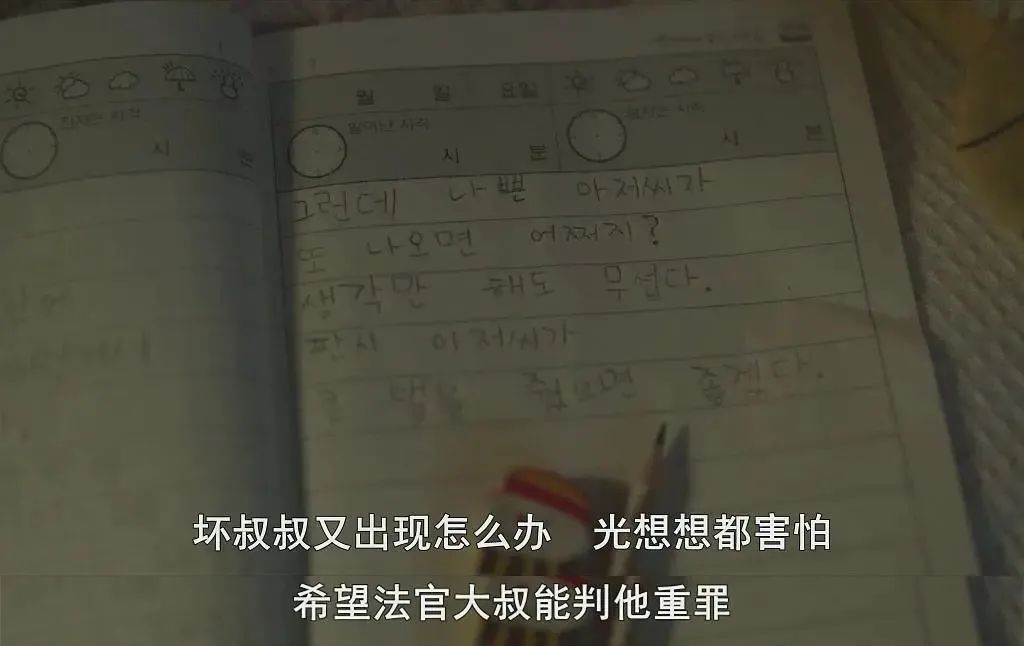 월 일 요일
일어난 시각
시 분
잠자는 시각
시 분
잠자는 시각
시 분
그런데 나쁜 아저씨가
또 나오면 어쩌지?
생각만 해도 무섭다.
판사 아저씨가
벌을 줬으면 좋겠다.
坏叔叔又出现怎么办 光想想都害怕
希望法官大叔能判他重罪